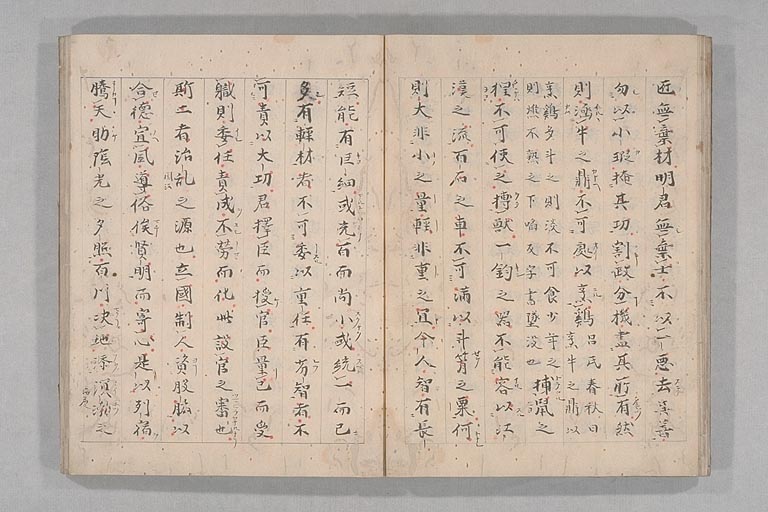 匠無棄材明君無棄士不以一悪去其善
勿以小瑕掩其功割政分機盡其所有然
則凾牛之鼎不可處以烹鶏呂氏春秋曰
烹牛之鼎以
烹鶏多斗之則淡不可食少斗之
則焦不熟之下㗖反字書墜没也捕鼠之
狸不可使之搏獸一鈞之器不能容以江
漢之流百石之車不可滿以斗筲之粟何
則大非小之量軽非重之宜今人智有長
短能有巨細或充百而尚小或統一而已
多有軽材者不可委以重任有劣智者不
可責以大功君擇臣而授官臣量己而受
職則委任責成不勞而化此設官之審也
斯二者治乱之源也立國制人資股肱以
合德宣風導俗俟賢明而寄心是以列宿
騰天助陰光之夕照百川決地添溟渤之